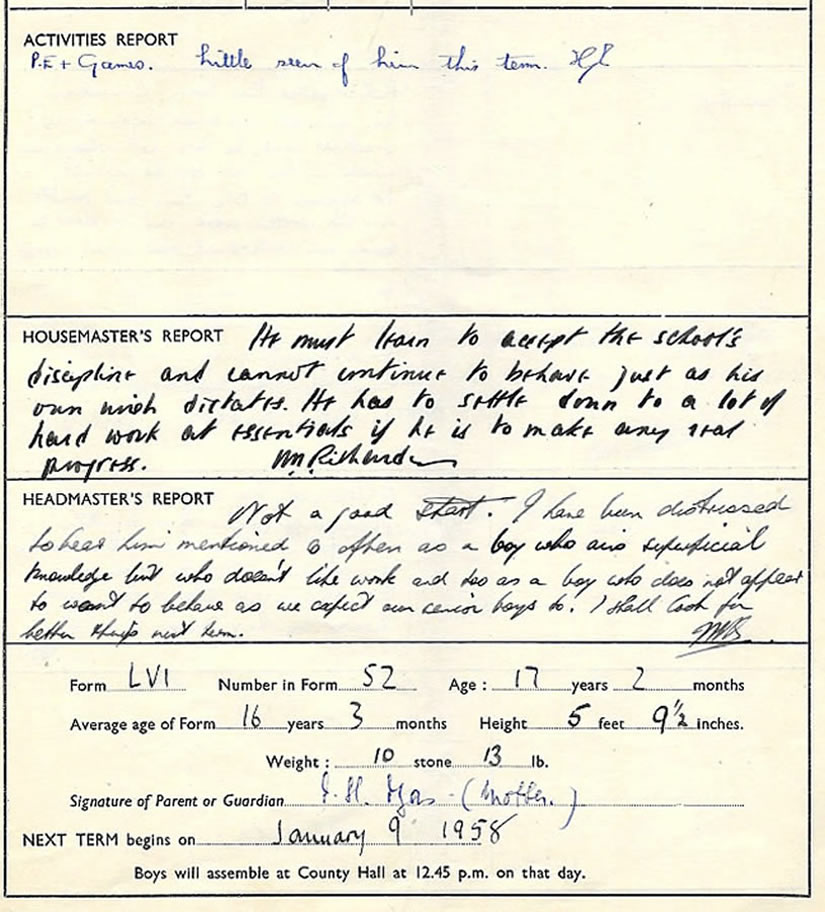 ACTIVITIES REPORT
P.E + Games. Little seen of him this term.
HOUSEMASTER'S REPORT He must learn to accept the school's
discipline and cannot continue to behave just as his
own wish dictates. He has to settle down to a lot of
hard work at essentials if he is to make any real
progress.
HEADMASTER'S REPORT Not a good start. I have been distressed
to hear him mentioned so often as a boy who airs superficial
knowledge but who doesn't like work and too as a boy who does not appear
to want to behave as we expect our senior boys to. I shall look for
better things next term.
Form LVI Number in Form 52 Age: 17 years 2 months
Average age of Form 16 years 3 months Height 5 feet 9½ inches.
Weight: 10 stone 13 lb.
Signature of Parent or Guardian (Mother.)
NEXT TERM begins on January 9 1958
Boys will assemble at County Hall at 12.45 p.m. on that day.